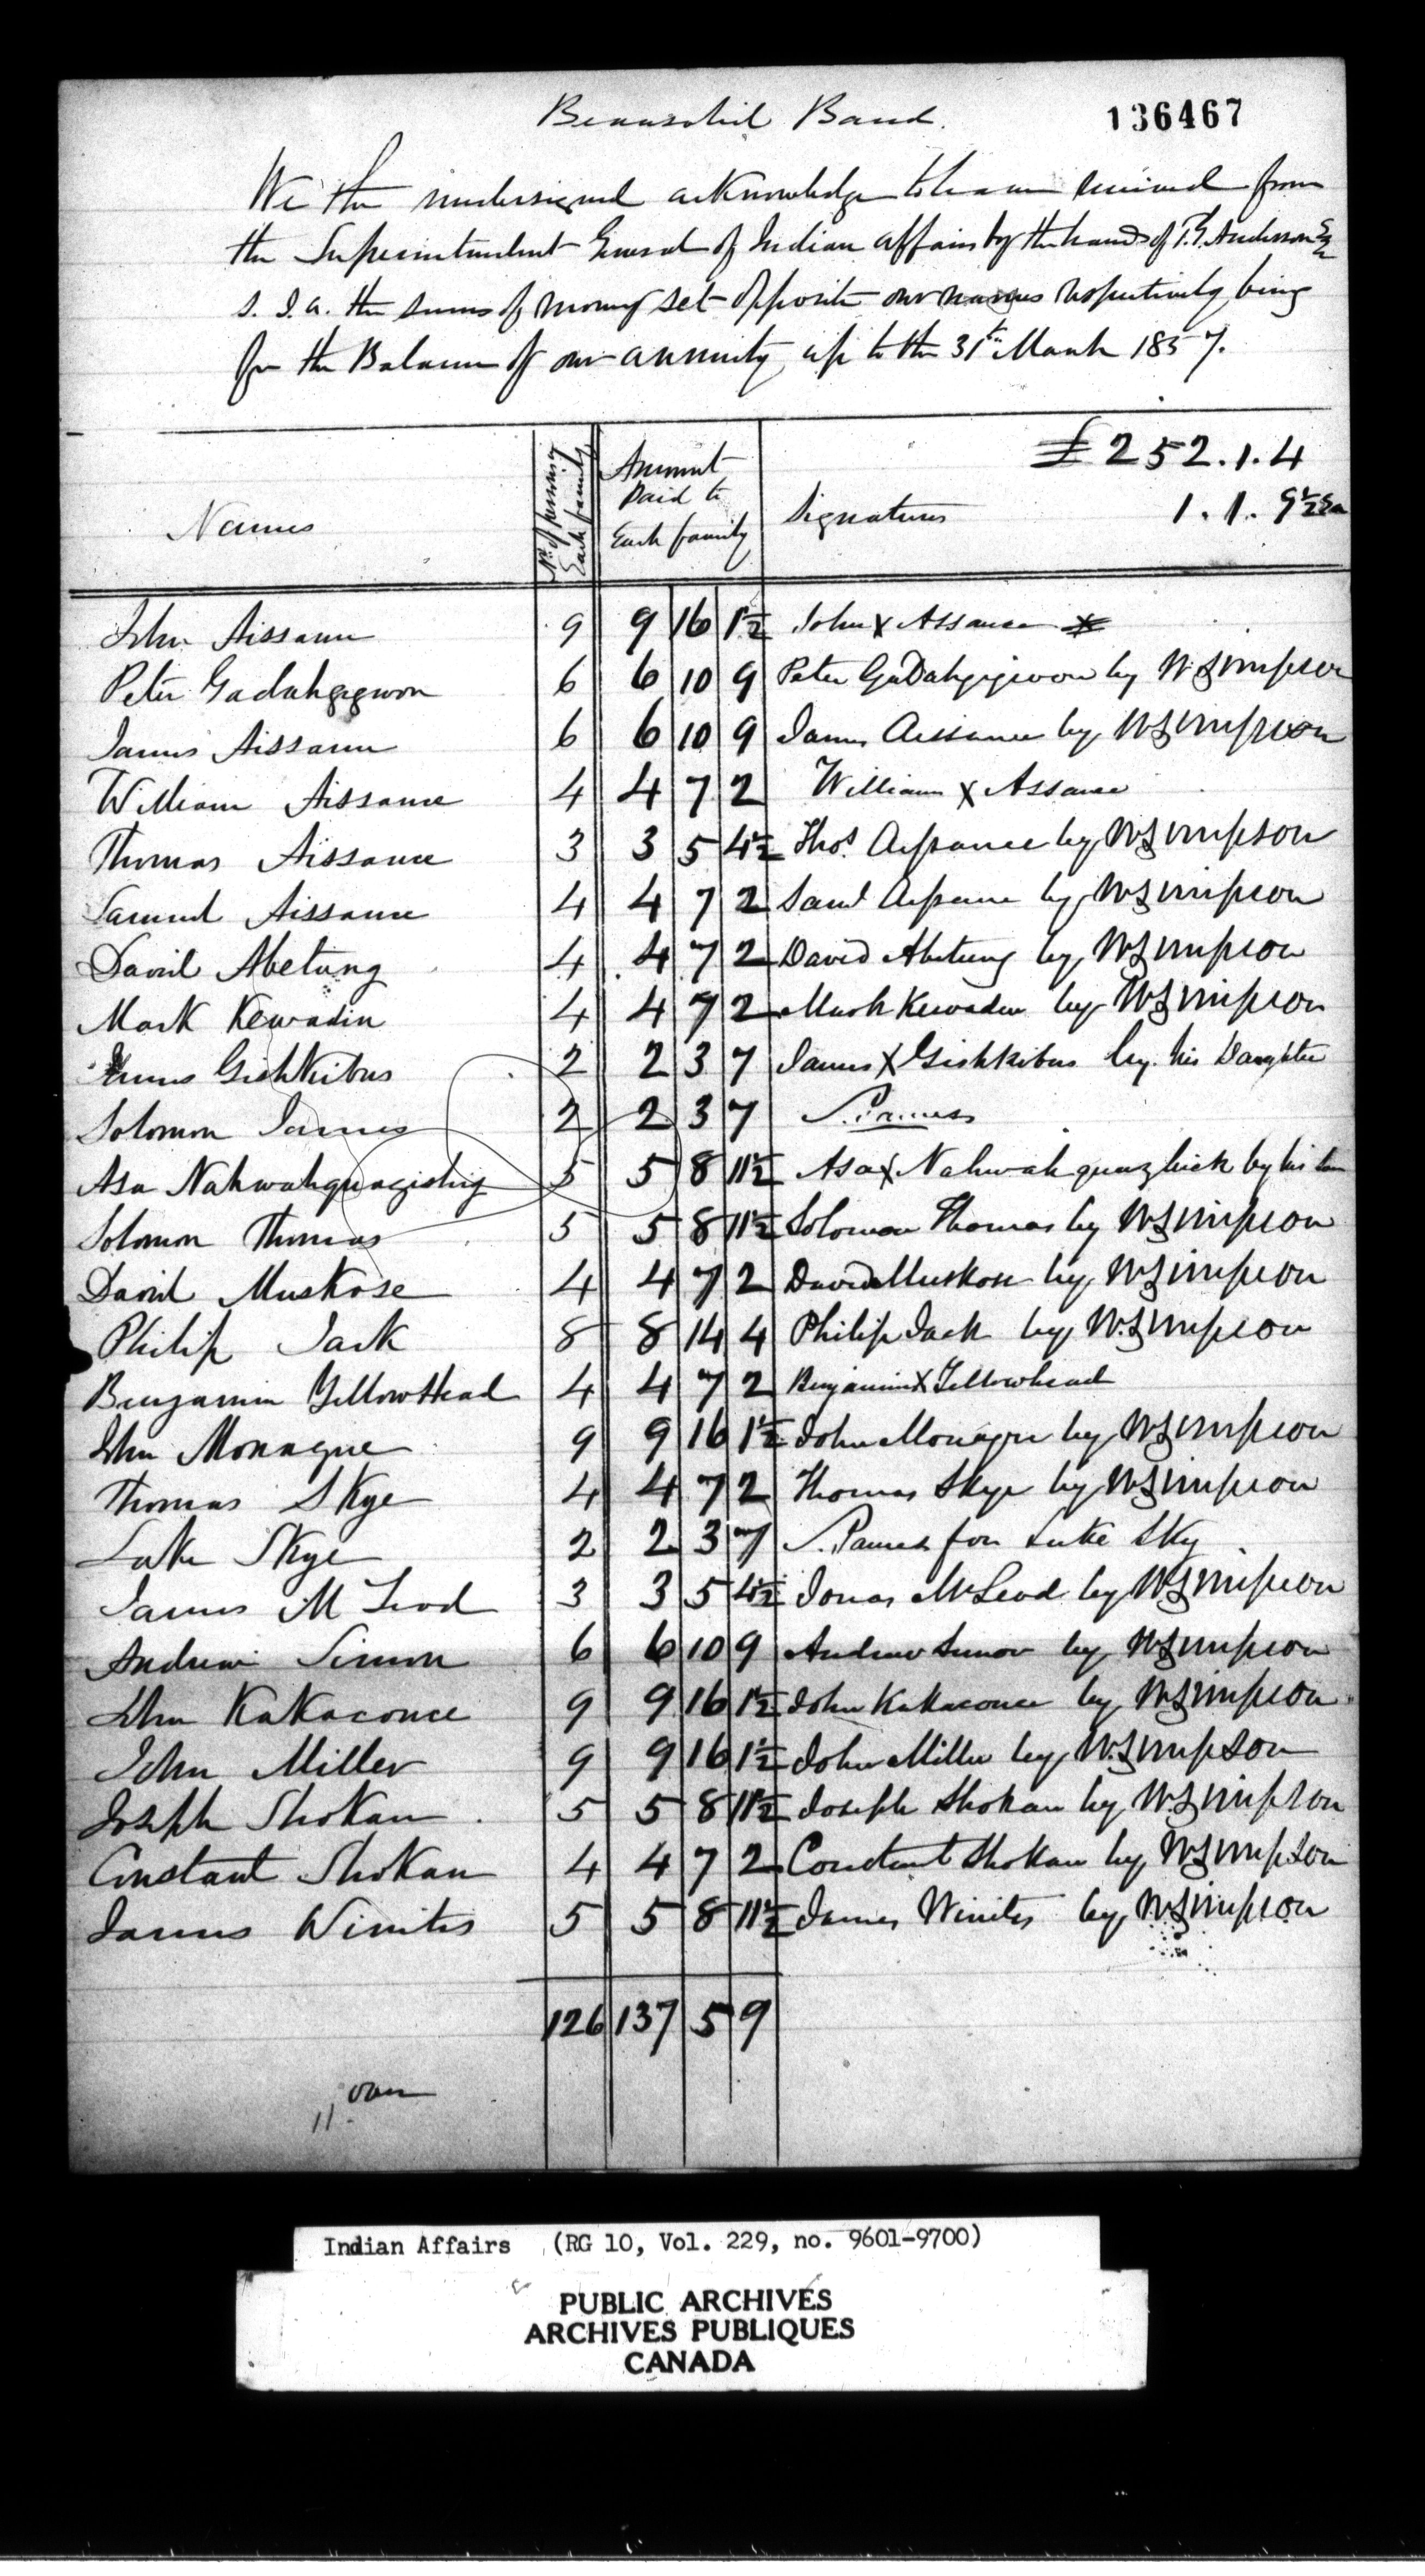 Beausolid Band. 136467
We the undersigned acknowledge to have received from
the Superintendent General of Indian affairs by the hands of T. G. Anderson Esq
S. I. A. the sums of money set opposite our names respectively being
for the Balance of our annuity up to the 31st March 1857.
£252.1.4
1.1.9½ Ea
Names No. of persons in Each family Amount Paid to Each family Signatures
John Aissance 9 9 16 1½ John X Assance
Peter Gadahgegwon 6 6 10 9 Peter GaDahgigwon by W Simpson
James Aissance 6 6 10 9 James Aissance by W Simpson
William Aissance 4 4 7 2 William X Assance
Thomas Aissance 3 3 5 4½ Thos. Assance by W Simpson
Samuel Aissance 4 4 7 2 Saml Assance by W Simpson
David Abetung 4 4 7 2 David Abetung by W Simpson
Mark Kewadin 4 4 7 2 Mark Kewadin by W Simpson
James GishKibus 2 2 3 7 James X Gishkibus by his Daughter
Solomon James 2 2 3 7 S. James
Asa Nahwahquagishig 5 5 8 11½ Asa X Nahwahquazhick by his
Solomon Thomas 5 5 8 11½ Solomon Thomas by W Simpson
David Muskose 4 4 7 2 David Muskose by W Simpson
Philip Jack 8 8 14 4 Philip Jack by W. Simpson
Benjamin YellowHead 4 4 7 2 Benjamin X Yellowhead
John Monague 9 9 16 1½ John Monague by W Simpson
Thomas Skye 4 4 7 2 Thomas Skye by W Simpson
Luke Skye 2 2 3 7 S. James for Luke Sky
James McLeod 3 3 5 4½ Jonas McLeod by W Simpson
Andrew Simon 6 6 10 9 Andrew Simon by W Simpson
John KaKaconce 9 9 16 1½ John KaKaconce by W Simpson
John Miller 9 9 16 1½ John Miller by W. Simpson
Joseph ShoKan 5 5 8 11½ Joseph Shokan by W. Simpson
Constant ShoKan 4 4 7 2 Constant Shokan by W Simpson
James Winites 5 5 8 11½ James Winites by W Simpson
126 137 5 9
over
Indian Affairs (RG 10, Vol. 229, no. 9601-9700)
PUBLIC ARCHIVES
ARCHIVES PUBLIQUES
CANADA